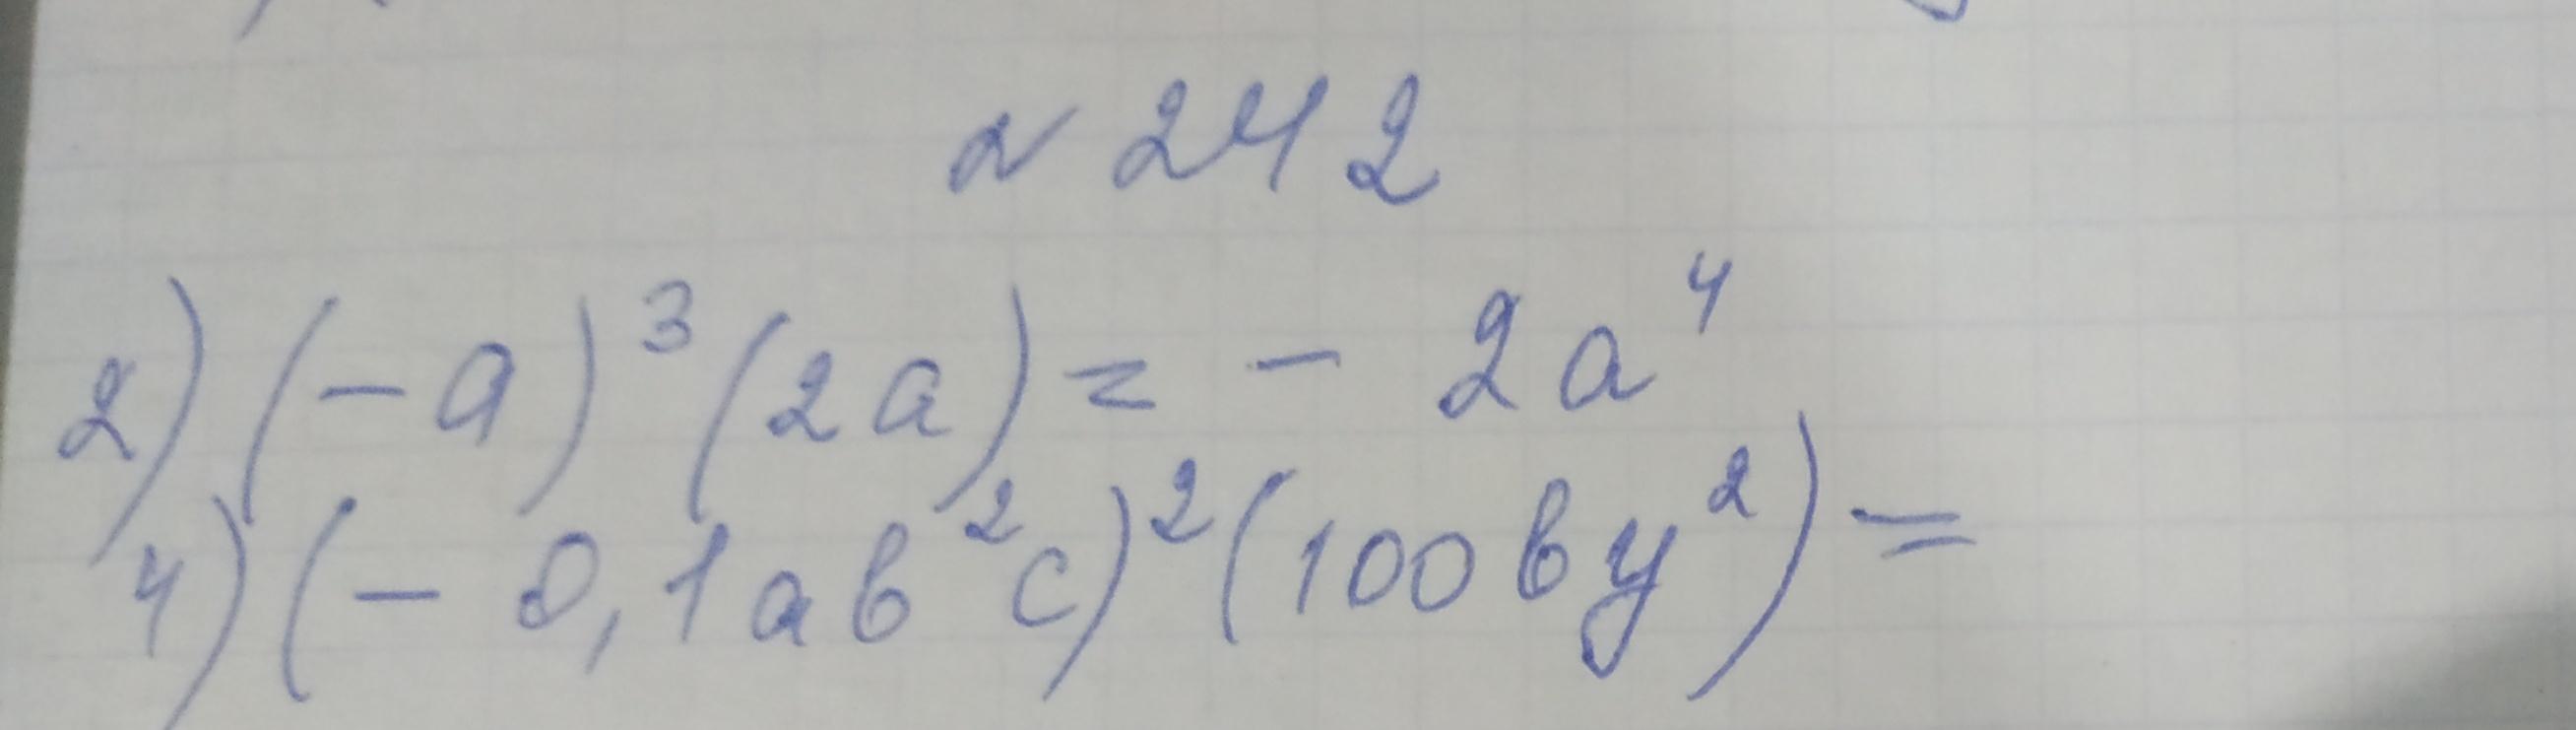 № 242
2) (-a)³(2a) = - 2a⁴
4) (- 0,1ab²c)²(100by²) =